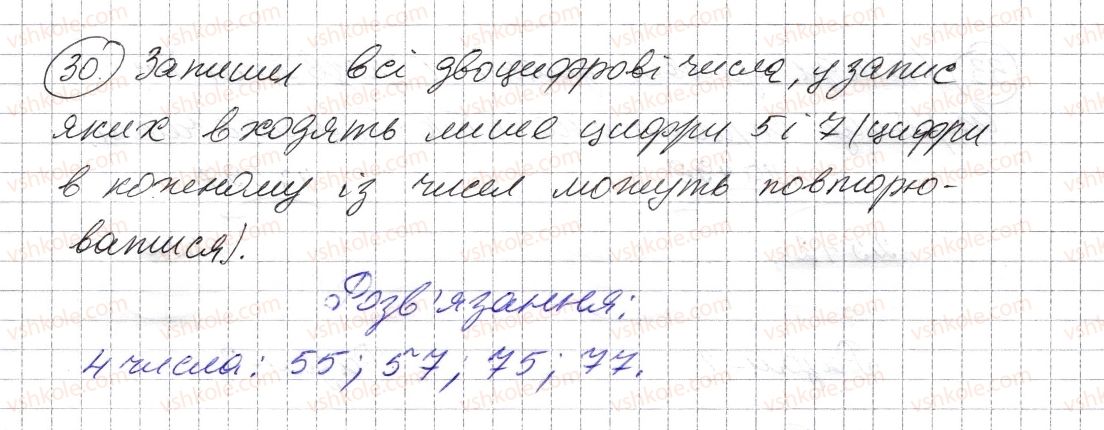 30 Запиши всі двоцифрові числа, у запис
яких входять лише цифри 5 і 7 (цифри
в кожному із чисел можуть повторю-
ватися).
Розв'язання:
4 числа: 55; 57; 75; 77.